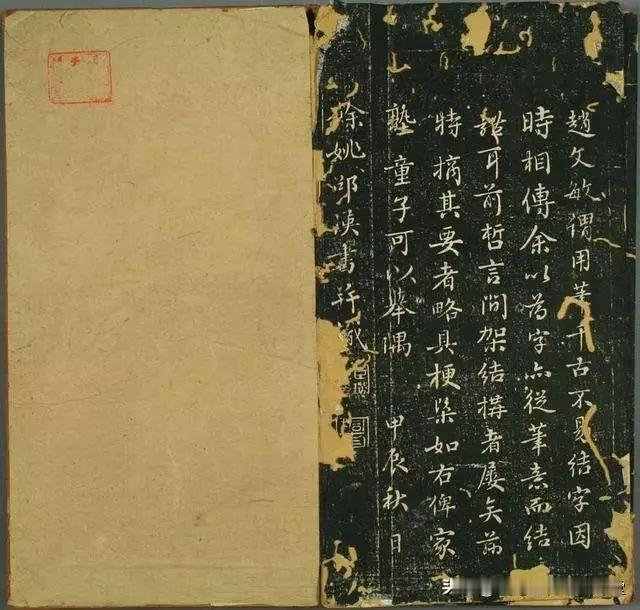 趙文敏謂用筆千古不易結字因
時相傳余以為字亦從筆意而結
耳前哲言間架結搆者屢矣茲
特摘其要者略具梗槩如右俾家
塾童子可以舉隅 甲辰秋日
餘姚邵瑛書并識